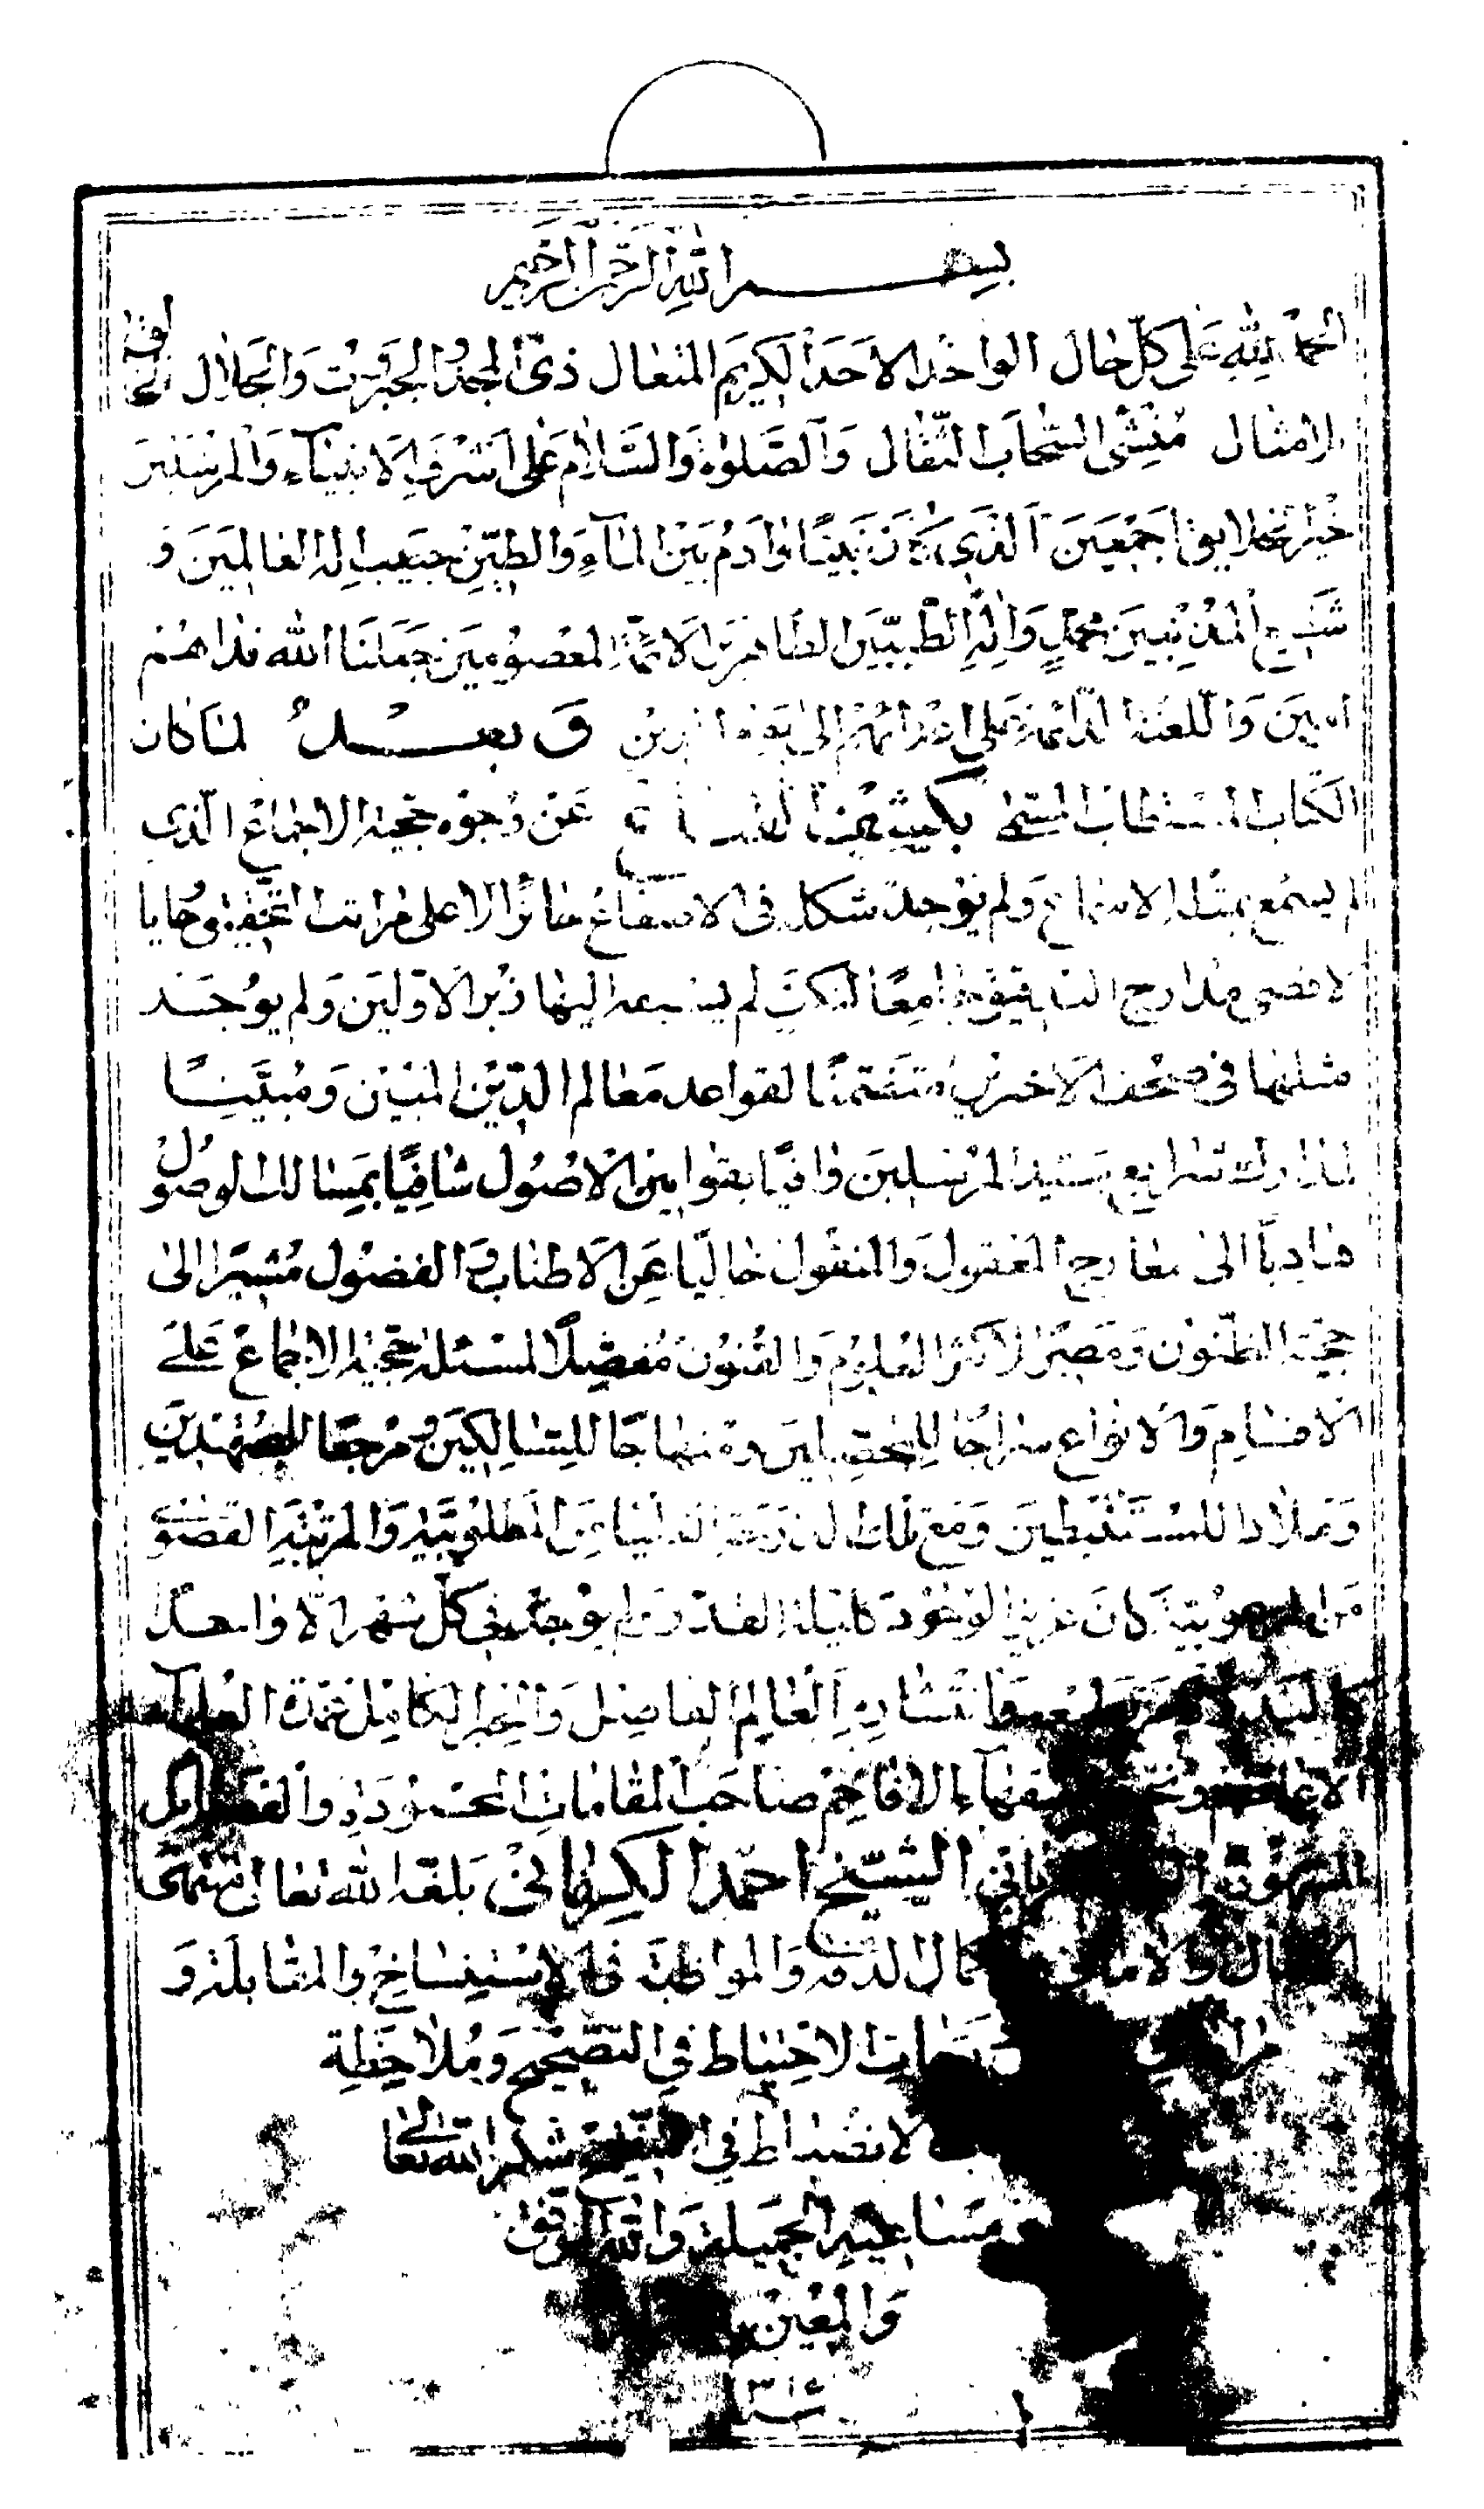 بسم الله الرحمن الرحيم
الحمد لله على كل حال الواحد الاحد الكريم المتعال ذى المجد والجبروت والجلال
الامثال منشئ السحاب الثقال والصلوة والسلام على اشرف الانبياء والمرسلين
خير خلايق اجمعين الذى كان نبيا وادم بين الماء والطين حبيب اله العالمين و
شفيع المذنبين محمد واله الطيبين الطاهرين الائمة المعصومين جعلنا الله فداهم
امين واللعنة الدائمة على اعدائهم الى يوم الدين وبعد لما كان
الكتاب المستطاب المسمى بكشف القناع عن وجوه حجية الاجماع الذى
لم يسمع بمثله الاسماع ولم يوجد شكله فى الاصقاع حائزا لاعلى مراتب التحقيق وحاويا
لاقصى مدارج التدقيق جامعا لنكت لم يسبقه اليها زبر الاولين ولم يوجد
مثلها فى صحف الاخرين متضمنا لقواعد معالم الدين المبين ومبينا
لمدارك شرايع سيد المرسلين وافيا بقوانين الاصول شافيا بمسالك الوصول
هاديا الى معارج المعقول والمنقول خاليا عن الاطناب والفضول مشيرا الى
حجية الظنون لاكثر العلوم والفنون مفصلا لمسئلة حجية الاجماع على
الاقسام والانواع سراجا للمحصلين ومنهاجا للسالكين ومرجعا للمجتهدين
وملاذا للمستنبطين ومع تلك الدرجة العليا من المطلوبية والمرتبة القصوى
من المرغوبية كان عزيز الوجود كليلة القدر ولم يوجد فى كل شهر الا واحدا
كالبدر وانتشاره العالم الفاضل والحبر الكامل عمدة العلماء
الاعاظم الفقهاء الافاخم صاحب المقامات المحمودة والفضايل
الشيخ احمد الكرمانى بلغه الله تعالى منتهى
والامانى كمال الدقة والمواظبة فى الاستنساخ والمقابلة و
الاحتياط فى التصحيح وملاحظة
الانضباط فى شكر الله تعالى
مساعيه الجميلة والله الموفق
والمعين